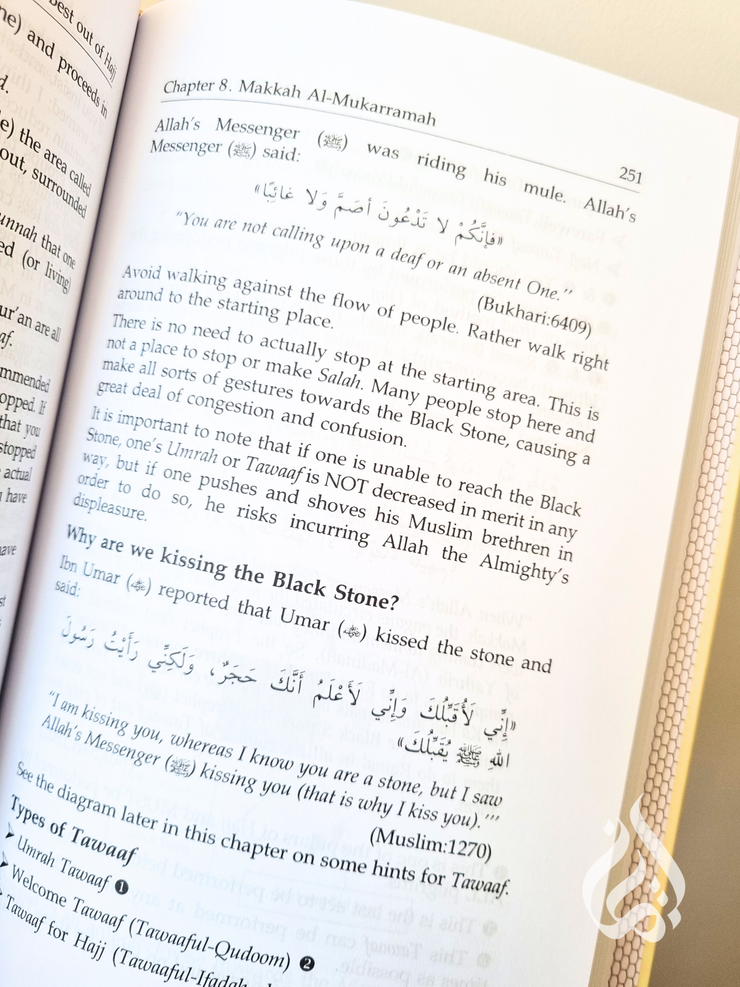 best out of Hajj
ne) and proceeds in
d.
e) the area called
out, surrounded
unnah that one
ed (or living)
ur'an are all
af.
mmended
opped. If
that you
stopped
actual
have
ave
st
Chapter 8. Makkah Al-Mukarramah
251
Allah's Messenger (ﷺ) was riding his mule. Allah's
Messenger (ﷺ) said:
«فَإِنَّكُمْ لَا تَدْعُونَ أَصَمَّ وَلَا غَائِبًا»
"You are not calling upon a deaf or an absent One."
(Bukhari:6409)
Avoid walking against the flow of people. Rather walk right
around to the starting place.
There is no need to actually stop at the starting area. This is
not a place to stop or make Salah. Many people stop here and
make all sorts of gestures towards the Black Stone, causing a
great deal of congestion and confusion.
It is important to note that if one is unable to reach the Black
Stone, one's Umrah or Tawaaf is NOT decreased in merit in any
way, but if one pushes and shoves his Muslim brethren in
order to do so, he risks incurring Allah the Almighty's
displeasure.
Why are we kissing the Black Stone?
Ibn Umar (﷜) reported that Umar (﷜) kissed the stone and
said:
«إِنِّي لَأُقَبِّلُكَ وَإِنِّي لَأَعْلَمُ أَنَّكَ حَجَرٌ، وَلَكِنِّي رَأَيْتُ رَسُولَ
اللهِ ﷺ يُقَبِّلُكَ»
"I am kissing you, whereas I know you are a stone, but I saw
Allah's Messenger (ﷺ) kissing you (that is why I kiss you).'"
(Muslim:1270)
See the diagram later in this chapter on some hints for Tawaaf.
Types of Tawaaf
➤ Umrah Tawaaf ❶
➤ Welcome Tawaaf (Tawaaful-Qudoom) ❷
Tawaaf for Hajj (Tawaaful-Ifadah